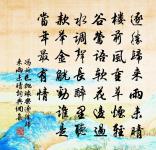 逐勝歸來雨未晴
樓前風重草煙輕
谷鶯語軟花邊過
水調聲長醉裏聽
款舉金觥勸誰是
當筵最有情
馮延巳拋球樂逐勝歸
來雨未晴